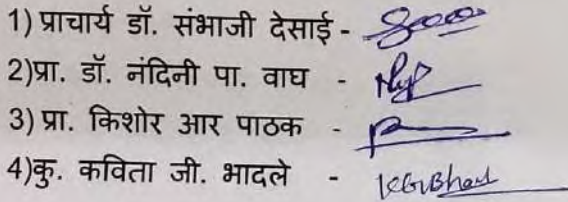 1) प्राचार्य डॉ. संभाजी देसाई -
2)प्रा. डॉ. नंदिनी पा. वाघ -
3) प्रा. किशोर आर पाठक -
4)कु. कविता जी. भादले - KGBhad